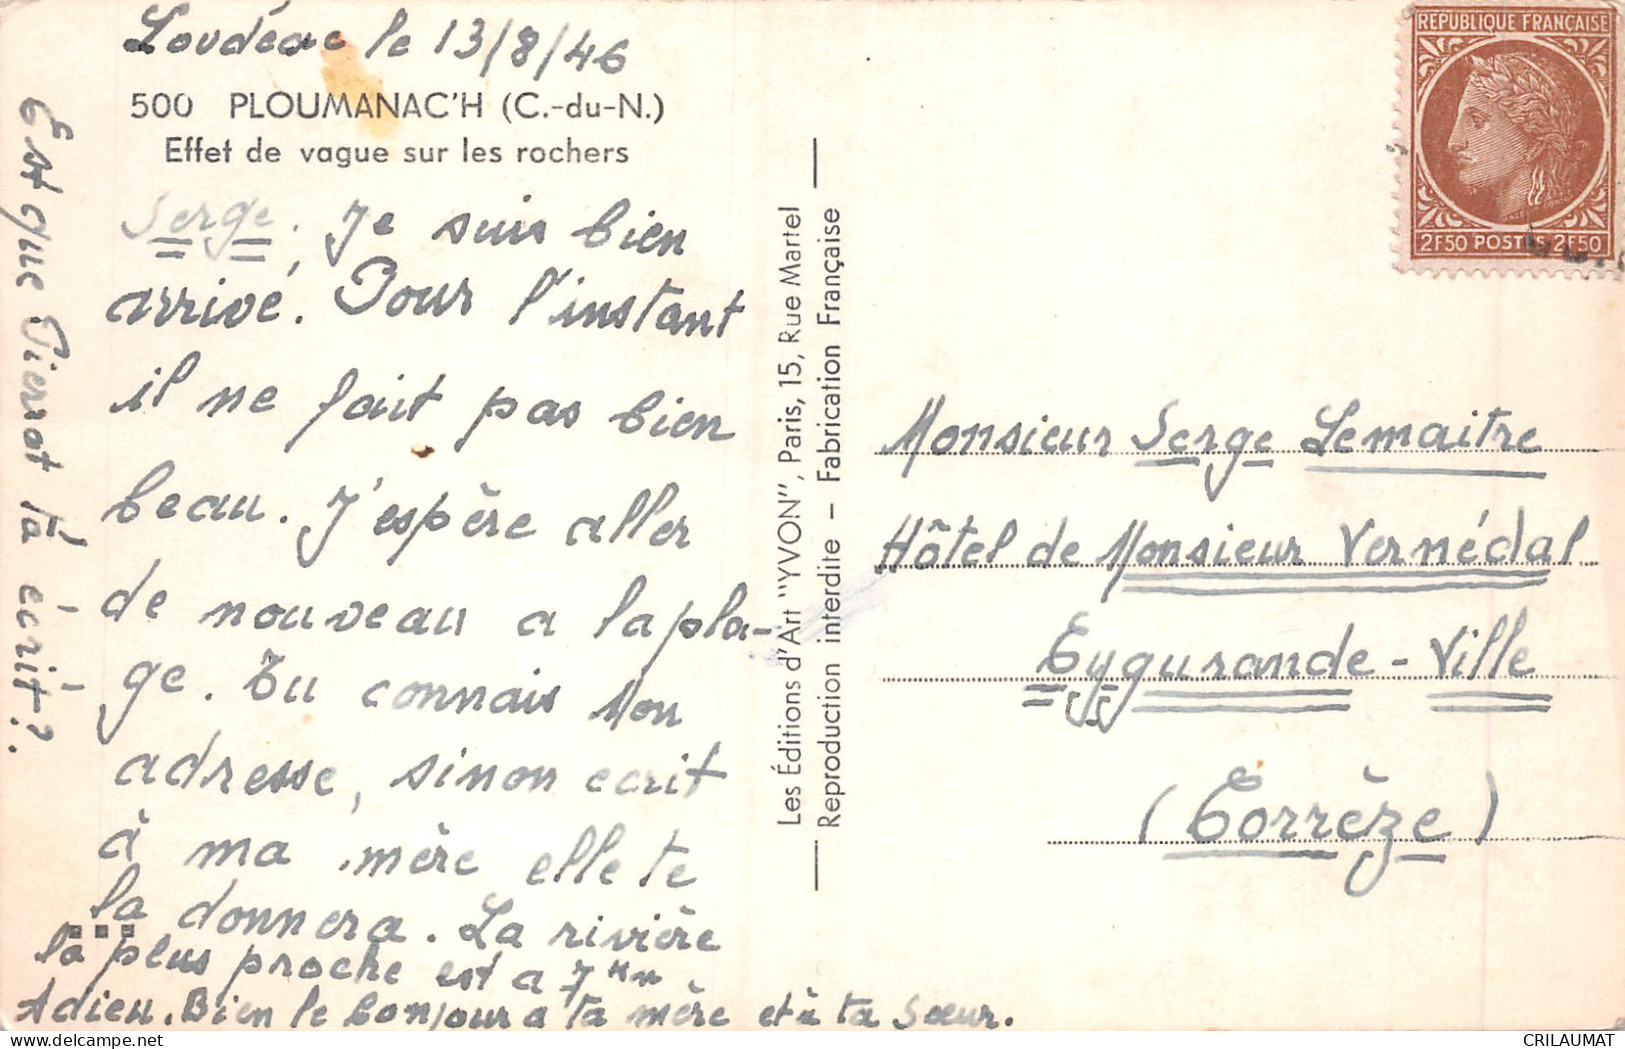 Loudéac le 13/8/46
500 PLOUMANAC'H (C.-du-N.)
Effet de vague sur les rochers
Serge, Je suis bien
arrivé. Pour l'instant
il ne fait pas bien
beau. J'espère aller
de nouveau a la pla-
ge. Tu connais mon
adresse, sinon ecrit
à ma mère elle te
la donnera. La rivière
la plus proche est a 7 Km
Adieu. Bien le bonjour a ta mère et à ta sœur.
Est que Pierrot t'a écrit?
Les Éditions d'Art "YVON", Paris, 15, Rue Martel
Reproduction interdite - Fabrication Française
REPUBLIQUE FRANÇAISE
2F50 POSTES 2F50
Monsieur Serge Lemaitre
Hôtel de Monsieur Vernédal
Eygurande-Ville
(Corrèze)
CRILAUMAT